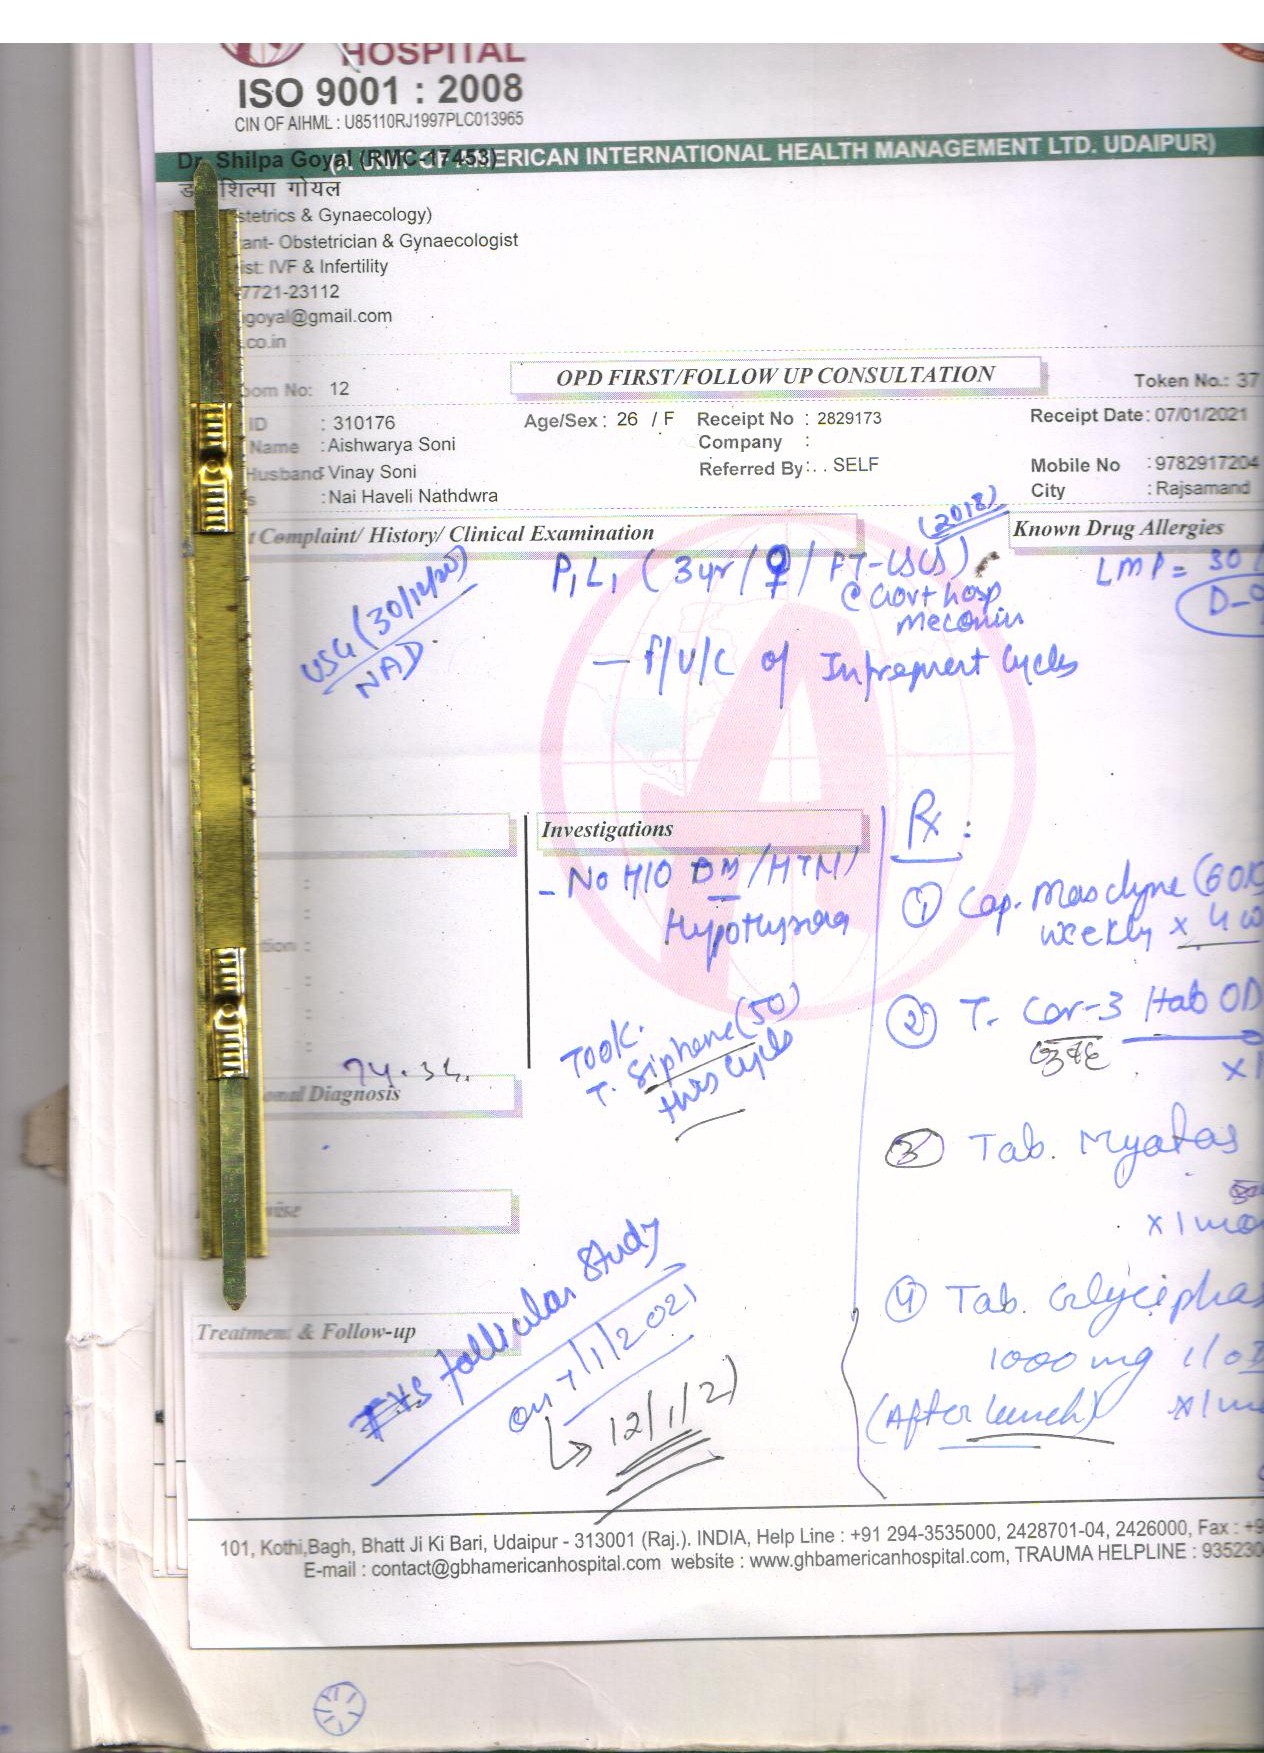 HOSPITAL
ISO 9001 : 2008
CIN OF AIHML : U85110RJ1997PLC013965
Dr. Shilpa Goyal (RMC-17453)
ERICAN INTERNATIONAL HEALTH MANAGEMENT LTD. UDAIPUR)
शिल्पा गोयल
stetrics & Gynaecology)
ant- Obstetrician & Gynaecologist
ist: IVF & Infertility
7721-23112
goyal@gmail.com
.co.in
OPD FIRST/FOLLOW UP CONSULTATION
oom No: 12
Token No.: 37
ID : 310176
Age/Sex : 26 / F
Receipt No : 2829173
Receipt Date : 07/01/2021
Name : Aishwarya Soni
Company :
Husband Vinay Soni
Referred By : . . SELF
Mobile No : 9782917204
s : Nai Haveli Nathdwra
City : Rajsamand
t Complaint/ History/ Clinical Examination
(2018)
Known Drug Allergies
USG (30/12/20)
NAD
P1L1 (3yr/♀/FT-LSCS)
@ Govt hosp.
Meconium
LMP = 30
D-9
- f/u/c of Infrequent Cycles
Investigations
- No H/O DM/HTN/
Rx :
① Cap.
(60K
weekly x 4 w
tion :
② T. Cor-3 1tab OD
x 1
Took.
T. Siphene (50)
this cycle
74.34.
onal Diagnosis
③ Tab. Myafas
x 1 mo
vise
④ Tab. Glycipha
1000 mg 1/OD
(After lunch)
x 1 m
Treatment & Follow-up
TVS follicular study
on 7/1/2021
↳ 12/1/21
101, Kothi,Bagh, Bhatt Ji Ki Bari, Udaipur - 313001 (Raj.). INDIA, Help Line : +91 294-3535000, 2428701-04, 2426000, Fax : +9
E-mail : contact@gbhamericanhospital.com website : www.ghbamericanhospital.com, TRAUMA HELPLINE : 935230